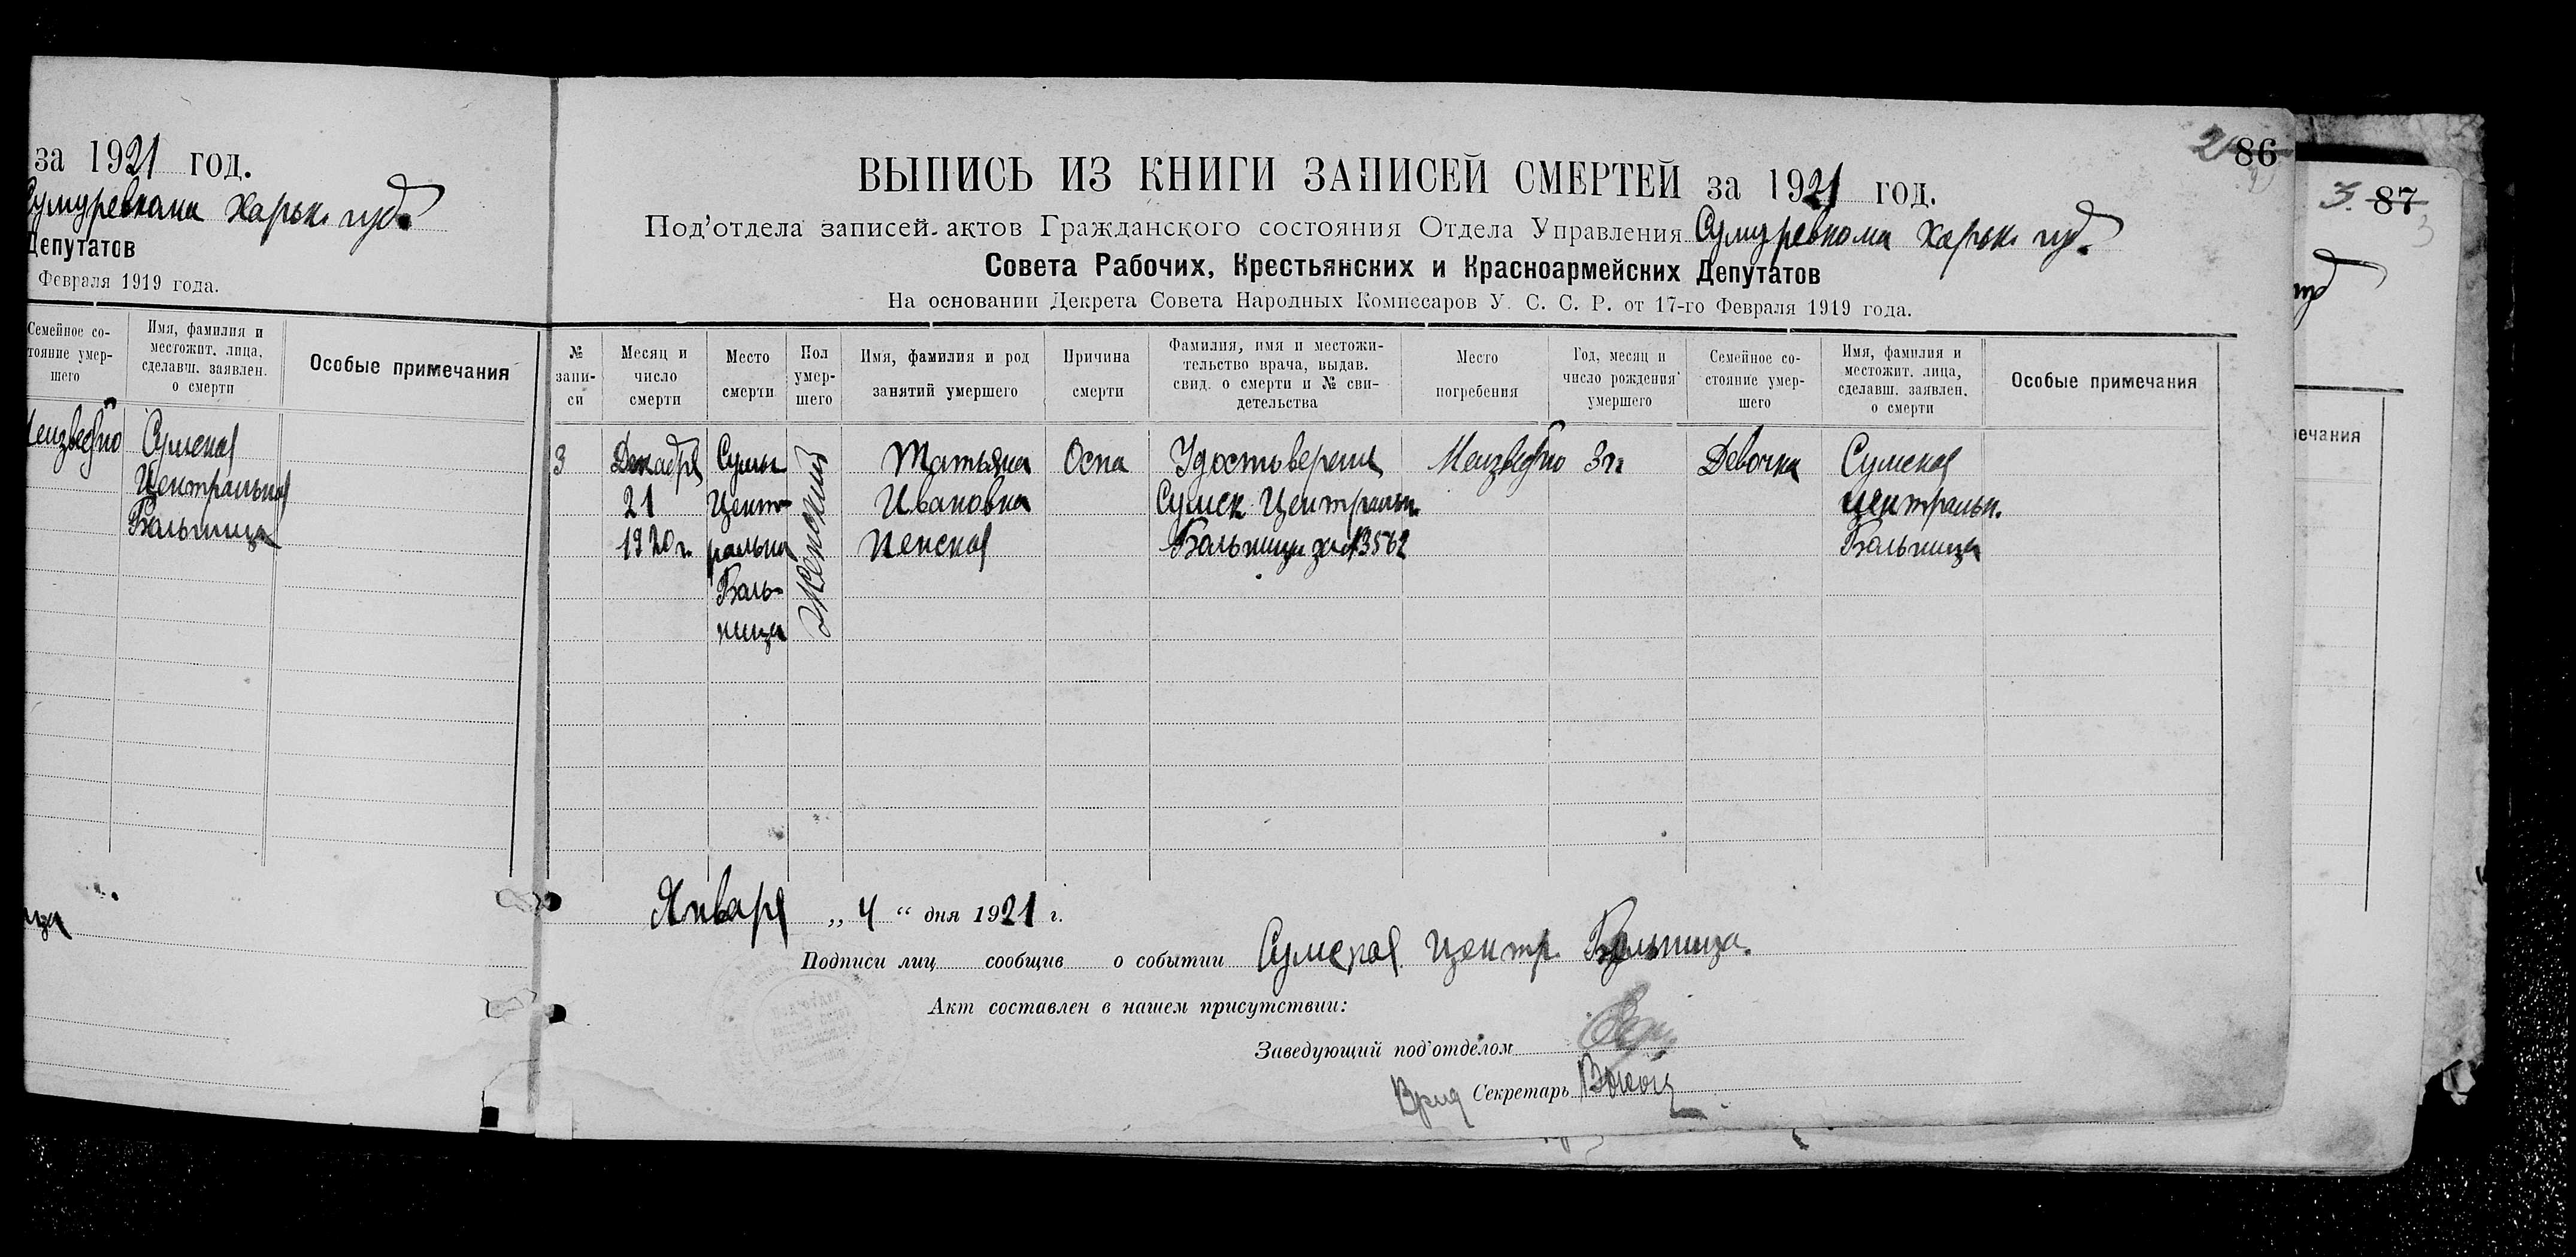 за 1921 год.
Сумуревкома Харьк. губ.
Депутатов
Февраля 1919 года.
Семейное со-
тояние умер-
шего
Имя, фамилия и
местожит. лица,
сделавш. заявлен.
о смерти
Особые примечания
Неизвестно
Сумская
Центральная
Больница
ца
86
2
ВЫПИСЬ ИЗ КНИГИ ЗАПИСЕЙ СМЕРТЕЙ за 1921 год.
Под'отдела записей актов Гражданского состояния Отдела Управления Сумуревкома Харьк. губ.
Совета Рабочих, Крестьянских и Красноармейских Депутатов
На основании Декрета Совета Народных Комиссаров У. С. С. Р. от 17-го Февраля 1919 года.
№
запи-
си
Месяц и
число
смерти
Место
смерти
Пол
умер-
шего
Имя, фамилия и род
занятий умершего
Причина
смерти
Фамилия, имя и местожи-
тельство врача, выдав.
свид. о смерти и № сви-
детельства
Место
погребения
Год, месяц и
число рождения
умершего
Семейное со-
стояние умер-
шего
Имя, фамилия и
местожит. лица,
сделавш. заявлен.
о смерти
Особые примечания
3
Декабря
21
1920 г.
Сумы
Цент-
ральна
Боль-
ница
Женский
Татьяна
Ивановна
Оспа
Удостоверение
Сумск. Центральн.
Больницы за № 3562
Неизвестно
3 г.
Девочка
Сумская
центральн.
Больница
Января „ 4 “ дня 1921 г.
Подписи лиц сообщив о событии Сумская центр. Больница.
Акт составлен в нашем присутствии:
Заведующий под'отделом
Врид Секретарь
3. 87
3
ечания